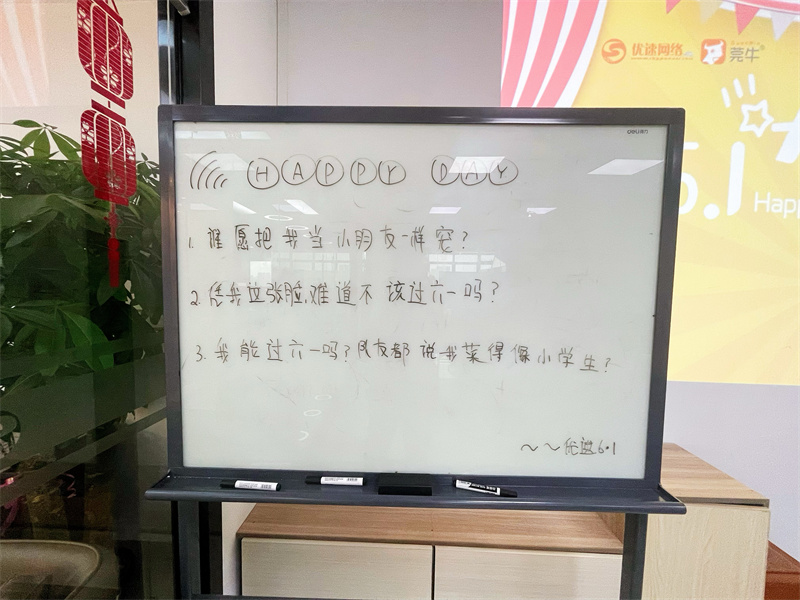 HAPPY DAY
1. 谁愿把我当小朋友一样宠?
2. 凭我这张脸,难道不该过六一吗?
3. 我能过六一吗? 队友都说我菜得像小学生?
~~优速6·1
deli
优速网络
莞牛
6.1
Happ